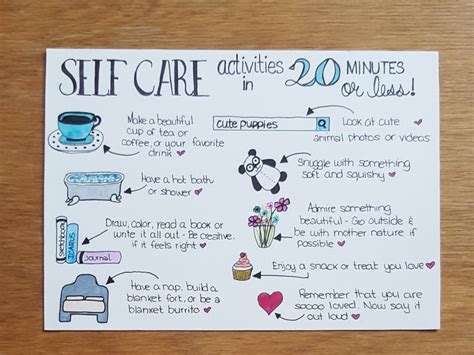 SELF CARE activities in 20 MINUTES or less!
Make a beautiful
cup of tea or
coffee, or your favorite
drink
cute puppies
Look at cute
animal photos or videos
Have a hot bath
or shower
Snuggle with something
soft and squishy
sketchbook
ICARUS
journal
Draw, color, read a book or
write it all out - Be creative,
if it feels right
Admire something
beautiful - Go outside &
be with mother nature if
possible
Enjoy a snack or treat you love
Have a nap, build a
blanket fort, or be a
blanket burrito
Remember that you are
soooo loved. Now say it
out loud